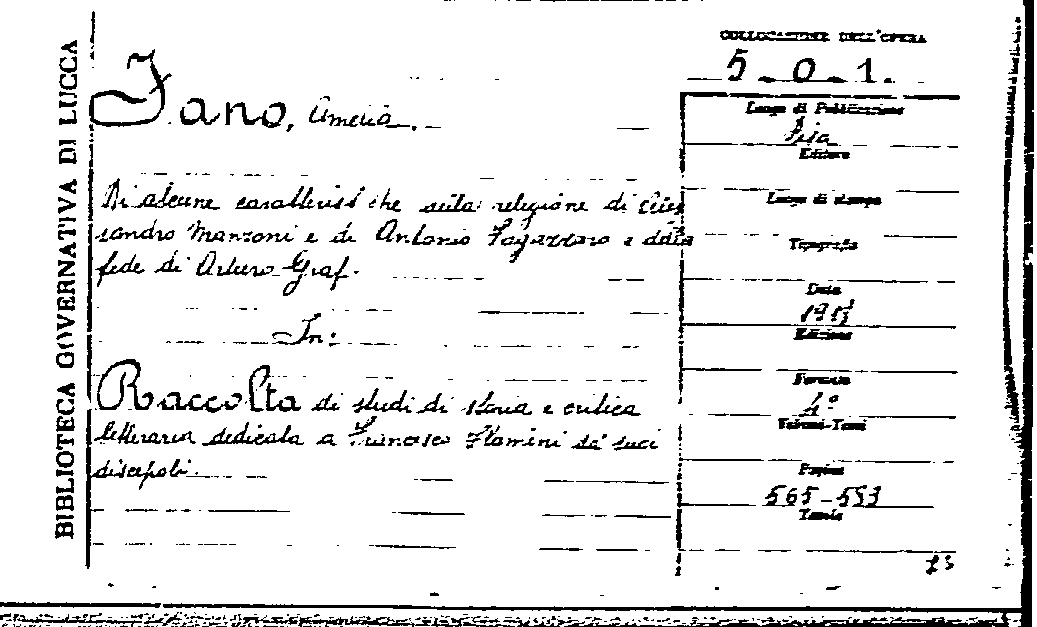 BIBLIOTECA GOVERNATIVA DI LUCCA
COLLOCAZIONE DELL'OPERA
5.0.1.
Fano, Amelia.
Di alcune caratteristiche sulla religione di Ales
sandro Manzoni e di Antonio Fogazzaro e della
fede di Arturo Graf.
In:
Raccolta di studi di storia e critica
letteraria dedicata a Francesco Flamini da' suoi
discepoli.
Luogo di Pubblicazione
Editore
Luogo di stampa
Tipografia
Data
Edizione
Formato
4°
Volumi-Tomi
Pagine
Tavole